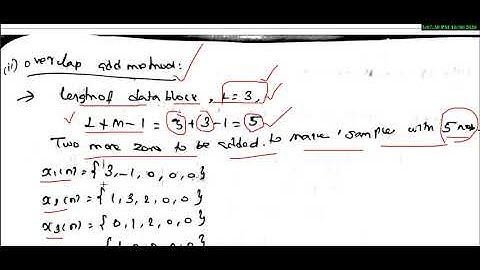 (ii) overlap add method:
→ length of data block, L = 3,
L+M-1 = 3+3-1 = 5
Two more zeros to be added to make, sample with 5
x₁(n) = {3, -1, 0, 0, 0}
x₂(n) = {1, 3, 2, 0, 0}
x₃(n) = {0, 1, 2, 0, 0}